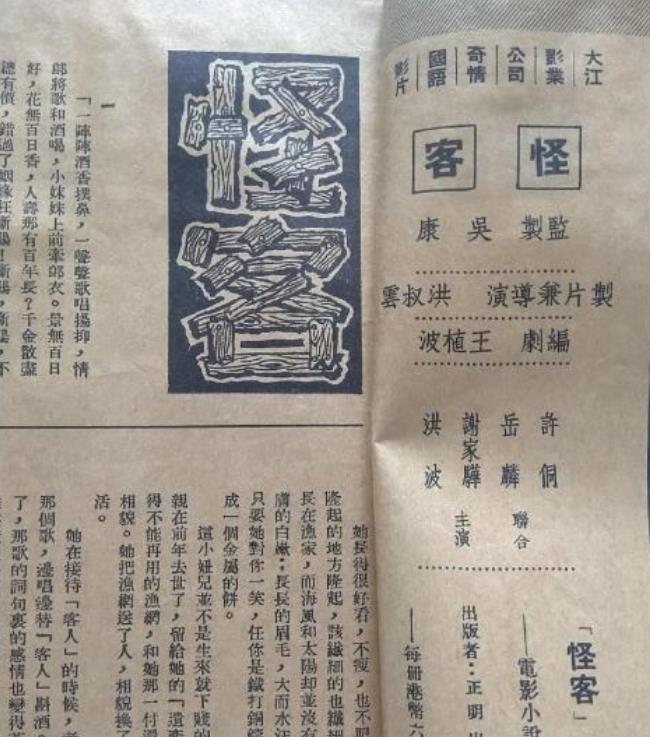 大江
影業
公司
奇情
國語
影片
怪客
監製 吳康
製片兼導演 洪叔雲
編劇 王植波
許侗
岳麟
謝家驊
洪波
聯合
主演
「怪客」
——電影小說
出版者：正明出
——每冊港幣六
怪客
一
「一陣陣酒香撲鼻，一聲聲歌唱揚抑，情
郎將歌和酒喝，小妹妹上前牽郎衣。景無百日
好，花無百日香，人壽那有百年長？千金散盡
總有價，錯過了姻緣枉斷腸！斷腸，斷腸，不
她長得很好看，不瘦，也不肥
隆起的地方隆起，該纖細的也纖細
長在漁家，而海風和太陽却並沒有
膚的白嫩：長長的眉毛，大而水汪
只要她對你一笑，任你是鐵打銅
成一個金屬的餅。
這小妞兒並不是生來就下賤的
親在前年去世了，留給她的「遺產
得不能再用的漁網，和她那一付
相貌。她把漁網送了人，相貌換了
活。
她在接待「客人」的時候，
那個歌，邊唱邊替「客人」斟酒。
了，那歌的詞句裏的感情也變得